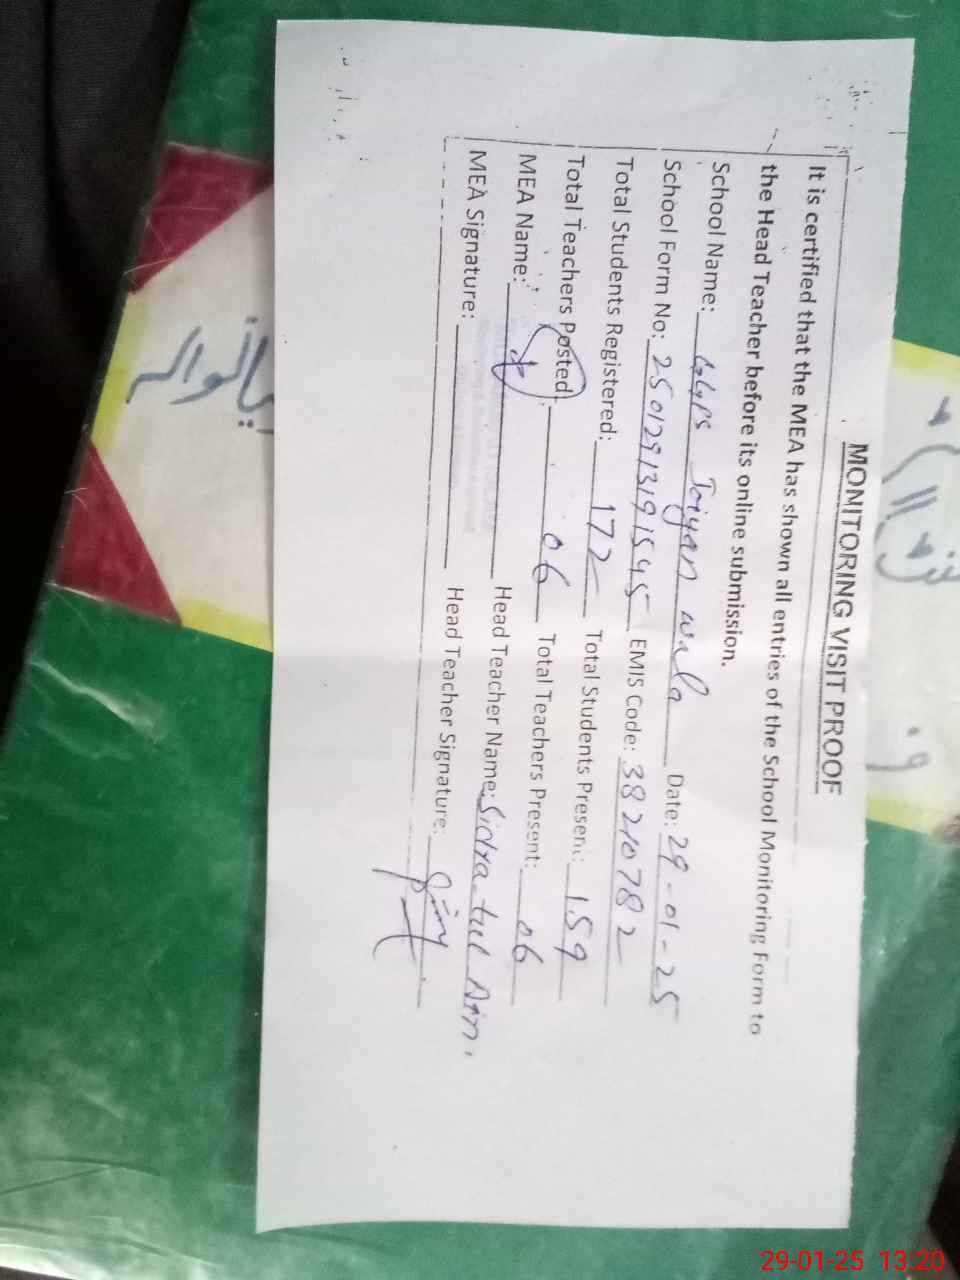 MONITORING VISIT PROOF
It is certified that the MEA has shown all entries of the School Monitoring Form to
the Head Teacher before its online submission.
School Name: GGPS Joiyan wala Date: 29-01-25
School Form No: 25012913191545 EMIS Code: 38210782
Total Students Registered: 172 Total Students Present: 159
Total Teachers Posted: 06 Total Teachers Present: 06
MEA Name: Head Teacher Name: Sidra-tul Ain.
MEA Signature: Head Teacher Signature:
29-01-25 13:20